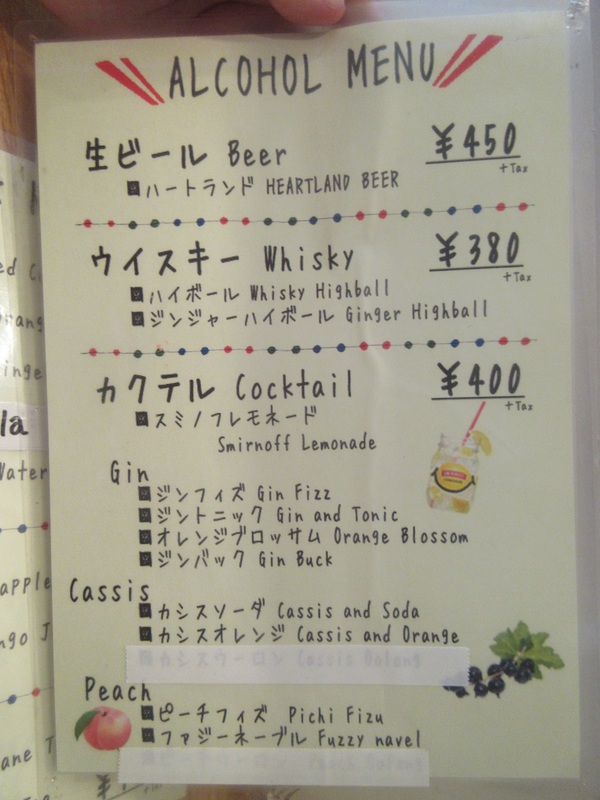 ALCOHOL MENU
生ビール Beer ¥450
+Tax
ハートランド HEARTLAND BEER
ウイスキー Whisky ¥380
+Tax
ハイボール Whisky Highball
ジンジャーハイボール Ginger Highball
カクテル Cocktail ¥400
+Tax
スミノフレモネード
Smirnoff Lemonade
Gin
ジンフィズ Gin Fizz
ジントニック Gin and Tonic
オレンジブロッサム Orange Blossom
ジンバック Gin Buck
Cassis
カシスソーダ Cassis and Soda
カシスオレンジ Cassis and Orange
カシスウーロン Cassis Oolong
Peach
ピーチフィズ Pichi Fizu
ファジーネーブル Fuzzy navel